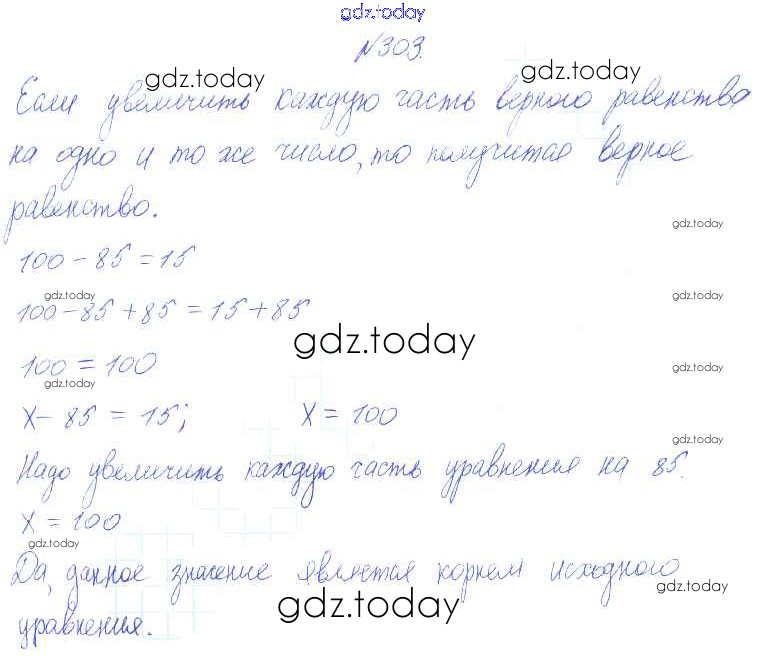 gdz.today
№303.
gdz.today gdz.today
Если увеличить каждую часть верного равенства
на одно и то же число, то получится верное
равенство.
gdz.today
100 - 85 = 15
gdz.today gdz.today
100 - 85 + 85 = 15 + 85
gdz.today
100 = 100
gdz.today
gdz.today
x - 85 = 15; x = 100
gdz.today
Надо увеличить каждую часть уравнения на 85.
x = 100
gdz.today
Да, данное значение является корнем исходного
gdz.today
gdz.today
уравнения.